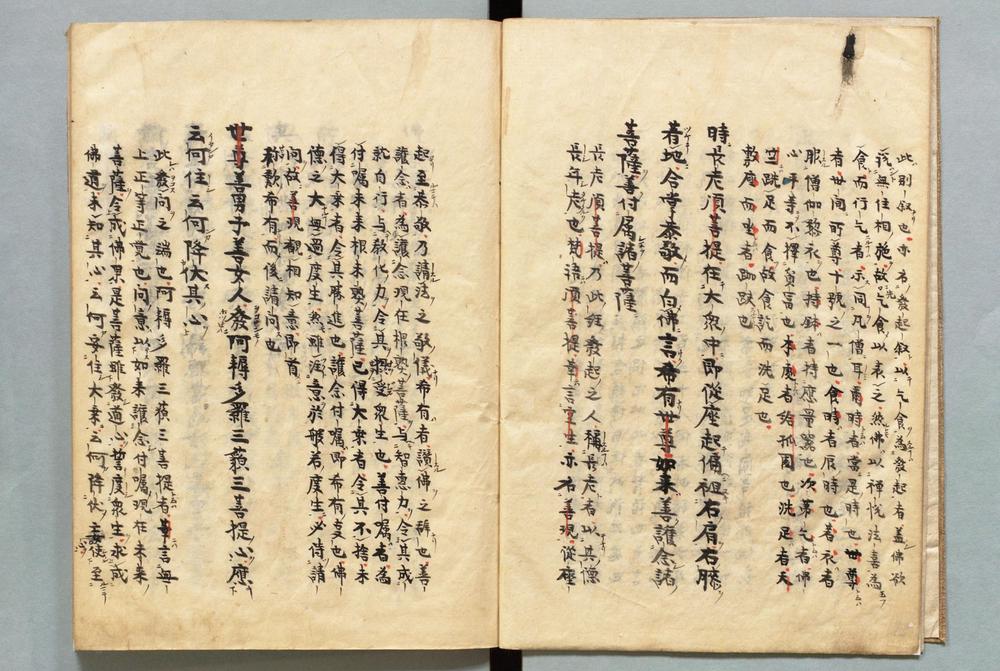 此別叙也亦名發起叙以乞食為發起者盖佛欲
説無住相施故乞食以表之然佛以禅悦法喜為
食而行乞者示同凡僧耳爾時者當是時也世尊
者世間所尊十號之一也食時者辰時也著衣者
那僧伽梨衣也持鉢者持應量器也次第乞者佛
心平等不擇貧富也本處者給孤園也洗足者天
竺跣足而食故食訖而洗足也
敷座而坐者跏趺也
時長老須菩提在大衆中即從座起偏袒右肩右膝
着地合掌恭敬而白佛言希有世尊如来善護念諸
菩薩善付属諸菩薩
長老須菩提乃此経發起之人稱長老者以其德
長年老也梵語須菩提華言空生亦名善現從座
起至恭敬乃請法之敬儀希有者讃佛之辞也善
護念者為護念現在根熟菩薩与智惠力令其成
就自行与教化力令其攝受衆生也善付嘱者為
付嘱未来根未熟菩薩已得大乗者令其不捨未
得大乗者令其勝進也護念付嘱即希有支也佛
德之大無過度生然雖注意於般若度生必待請
問故善現覩相知意即首
称歎希有而後請問也
世尊善男子善女人發阿耨多羅三藐三菩提心應
云何住云何降伏其心
此發問之端也阿耨多羅三藐三菩提者華言無
上正等正覚也問意以如来護念付嘱現在未来
菩薩令成佛果是菩薩雖發道心誓度衆生求成
佛道未知其心云何安住大乗云何降伏妄使至